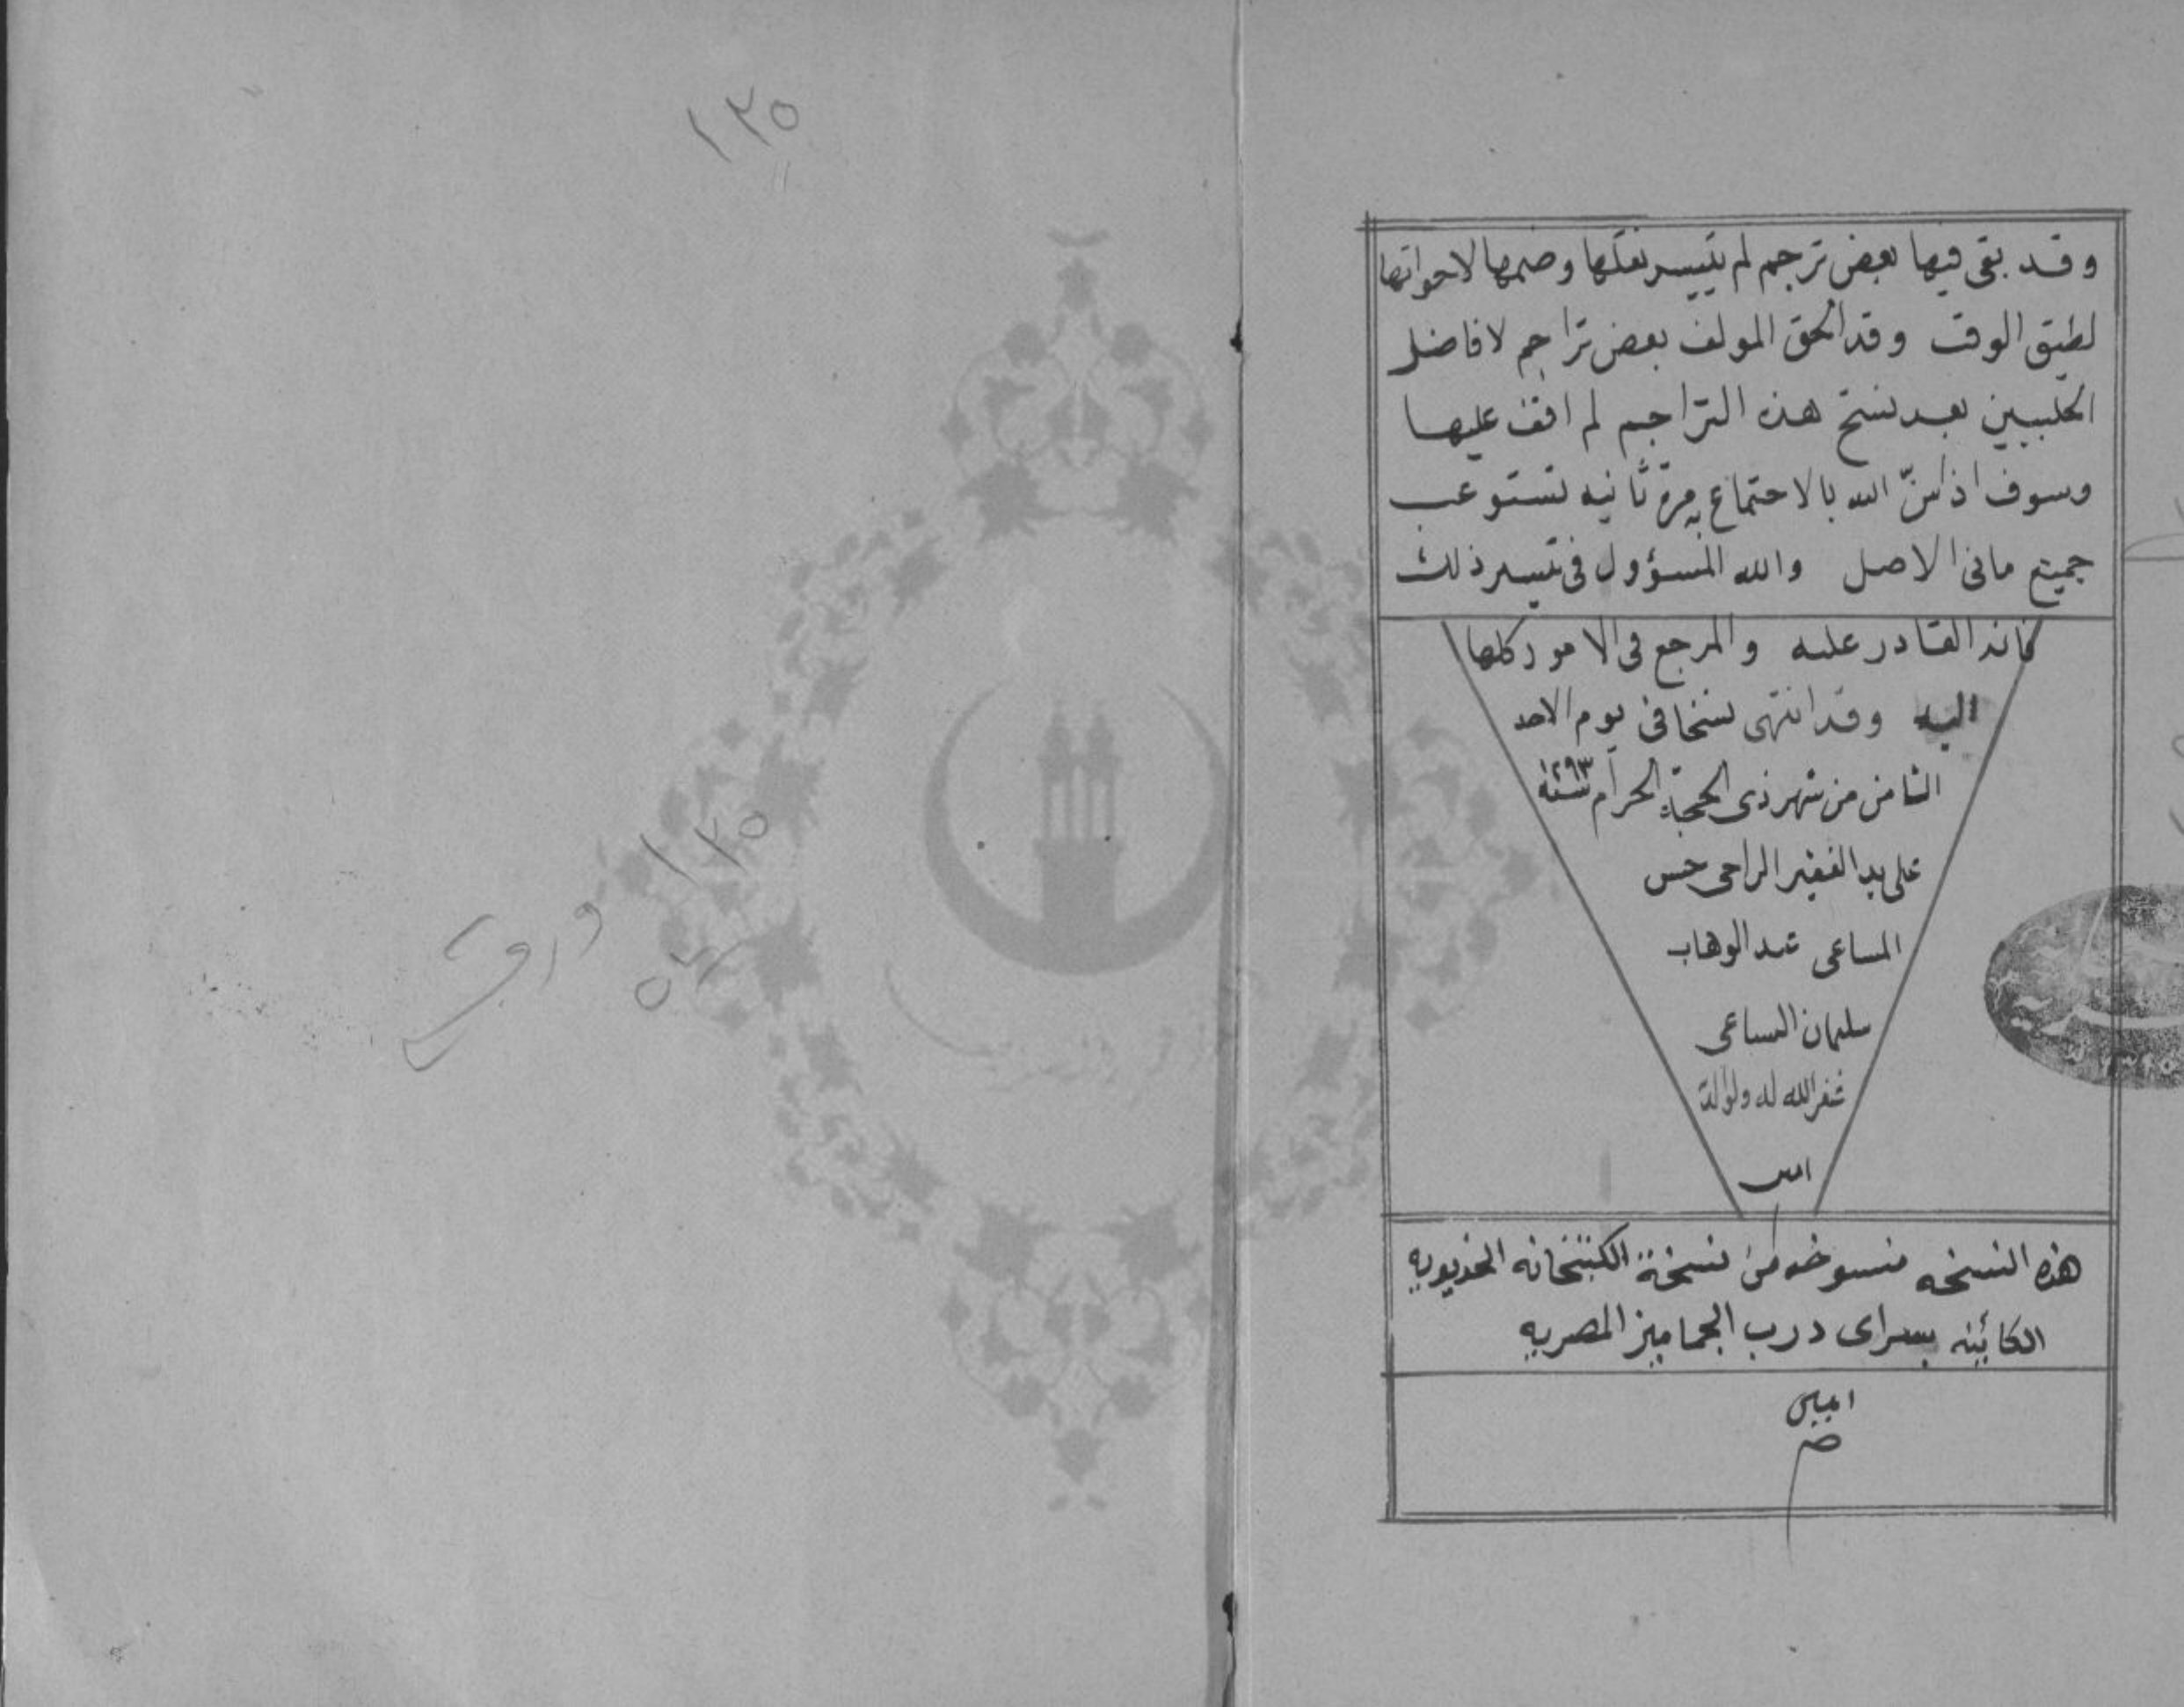 وقد بقى فيها بعض ترجم لم يتيسر نقلها وضمها لاخواتها
لضيق الوقت وقد الحق المولف بعض تراجم لافاضل
الحلبيين بعد نسخ هذه التراجم لم اقف عليها
وسوف اذا منّ الله بالاجتماع به مرة ثانيه تستوعب
جميع ما فى الاصل والله المسؤول فى تيسير ذلك
فانه القادر عليه والمرجع فى الامور كلها
اليه وقد انتهى نسخا فى يوم الاحد
الثامن من شهر ذى الحجة الحرام سنة ١٢٩٣
على يد الفقير الراجى حسن
المساعى عبد الوهاب
سليمان
غفر الله له ولوالديه
امين
هذه النسخه منسوخه من نسخة الكتبخانه الخديويه
الكائنه بسراى درب الجماميز المصريه
امين
م
١٣٥
١٣٥
ورقة